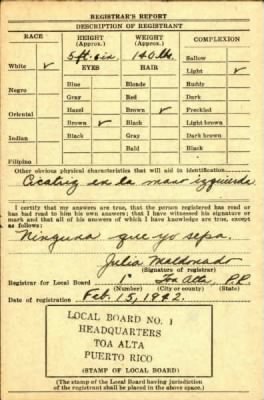 REGISTRAR'S REPORT
DESCRIPTION OF REGISTRANT
RACE HEIGHT (Approx.) WEIGHT (Approx.) COMPLEXION
5 ft. six 140 lb. Sallow
White ✓ EYES HAIR Light ✓
Blue Blonde Ruddy
Negro Gray Red Dark
Hazel Brown ✓ Freckled
Oriental Brown ✓ Black Light brown
Black Gray Dark brown
Indian Bald Black
Filipino
Other obvious physical characteristics that will aid in identification
Cicatriz en la mano izquierda
I certify that my answers are true, that the person registered has read or
has had read to him his own answers; that I have witnessed his signature or
mark and that all of his answers of which I have knowledge are true, except
as follows:
Ninguna que yo sepa.
Julia Maldonado
(Signature of registrar)
Registrar for Local Board 1 Toa Alta, P.R.
(Number) (City or county) (State)
Date of registration Feb. 15, 1942.
LOCAL BOARD NO. 1
HEADQUARTERS
TOA ALTA
PUERTO RICO
(STAMP OF LOCAL BOARD)
(The stamp of the Local Board having jurisdiction
of the registrant shall be placed in the above space.)